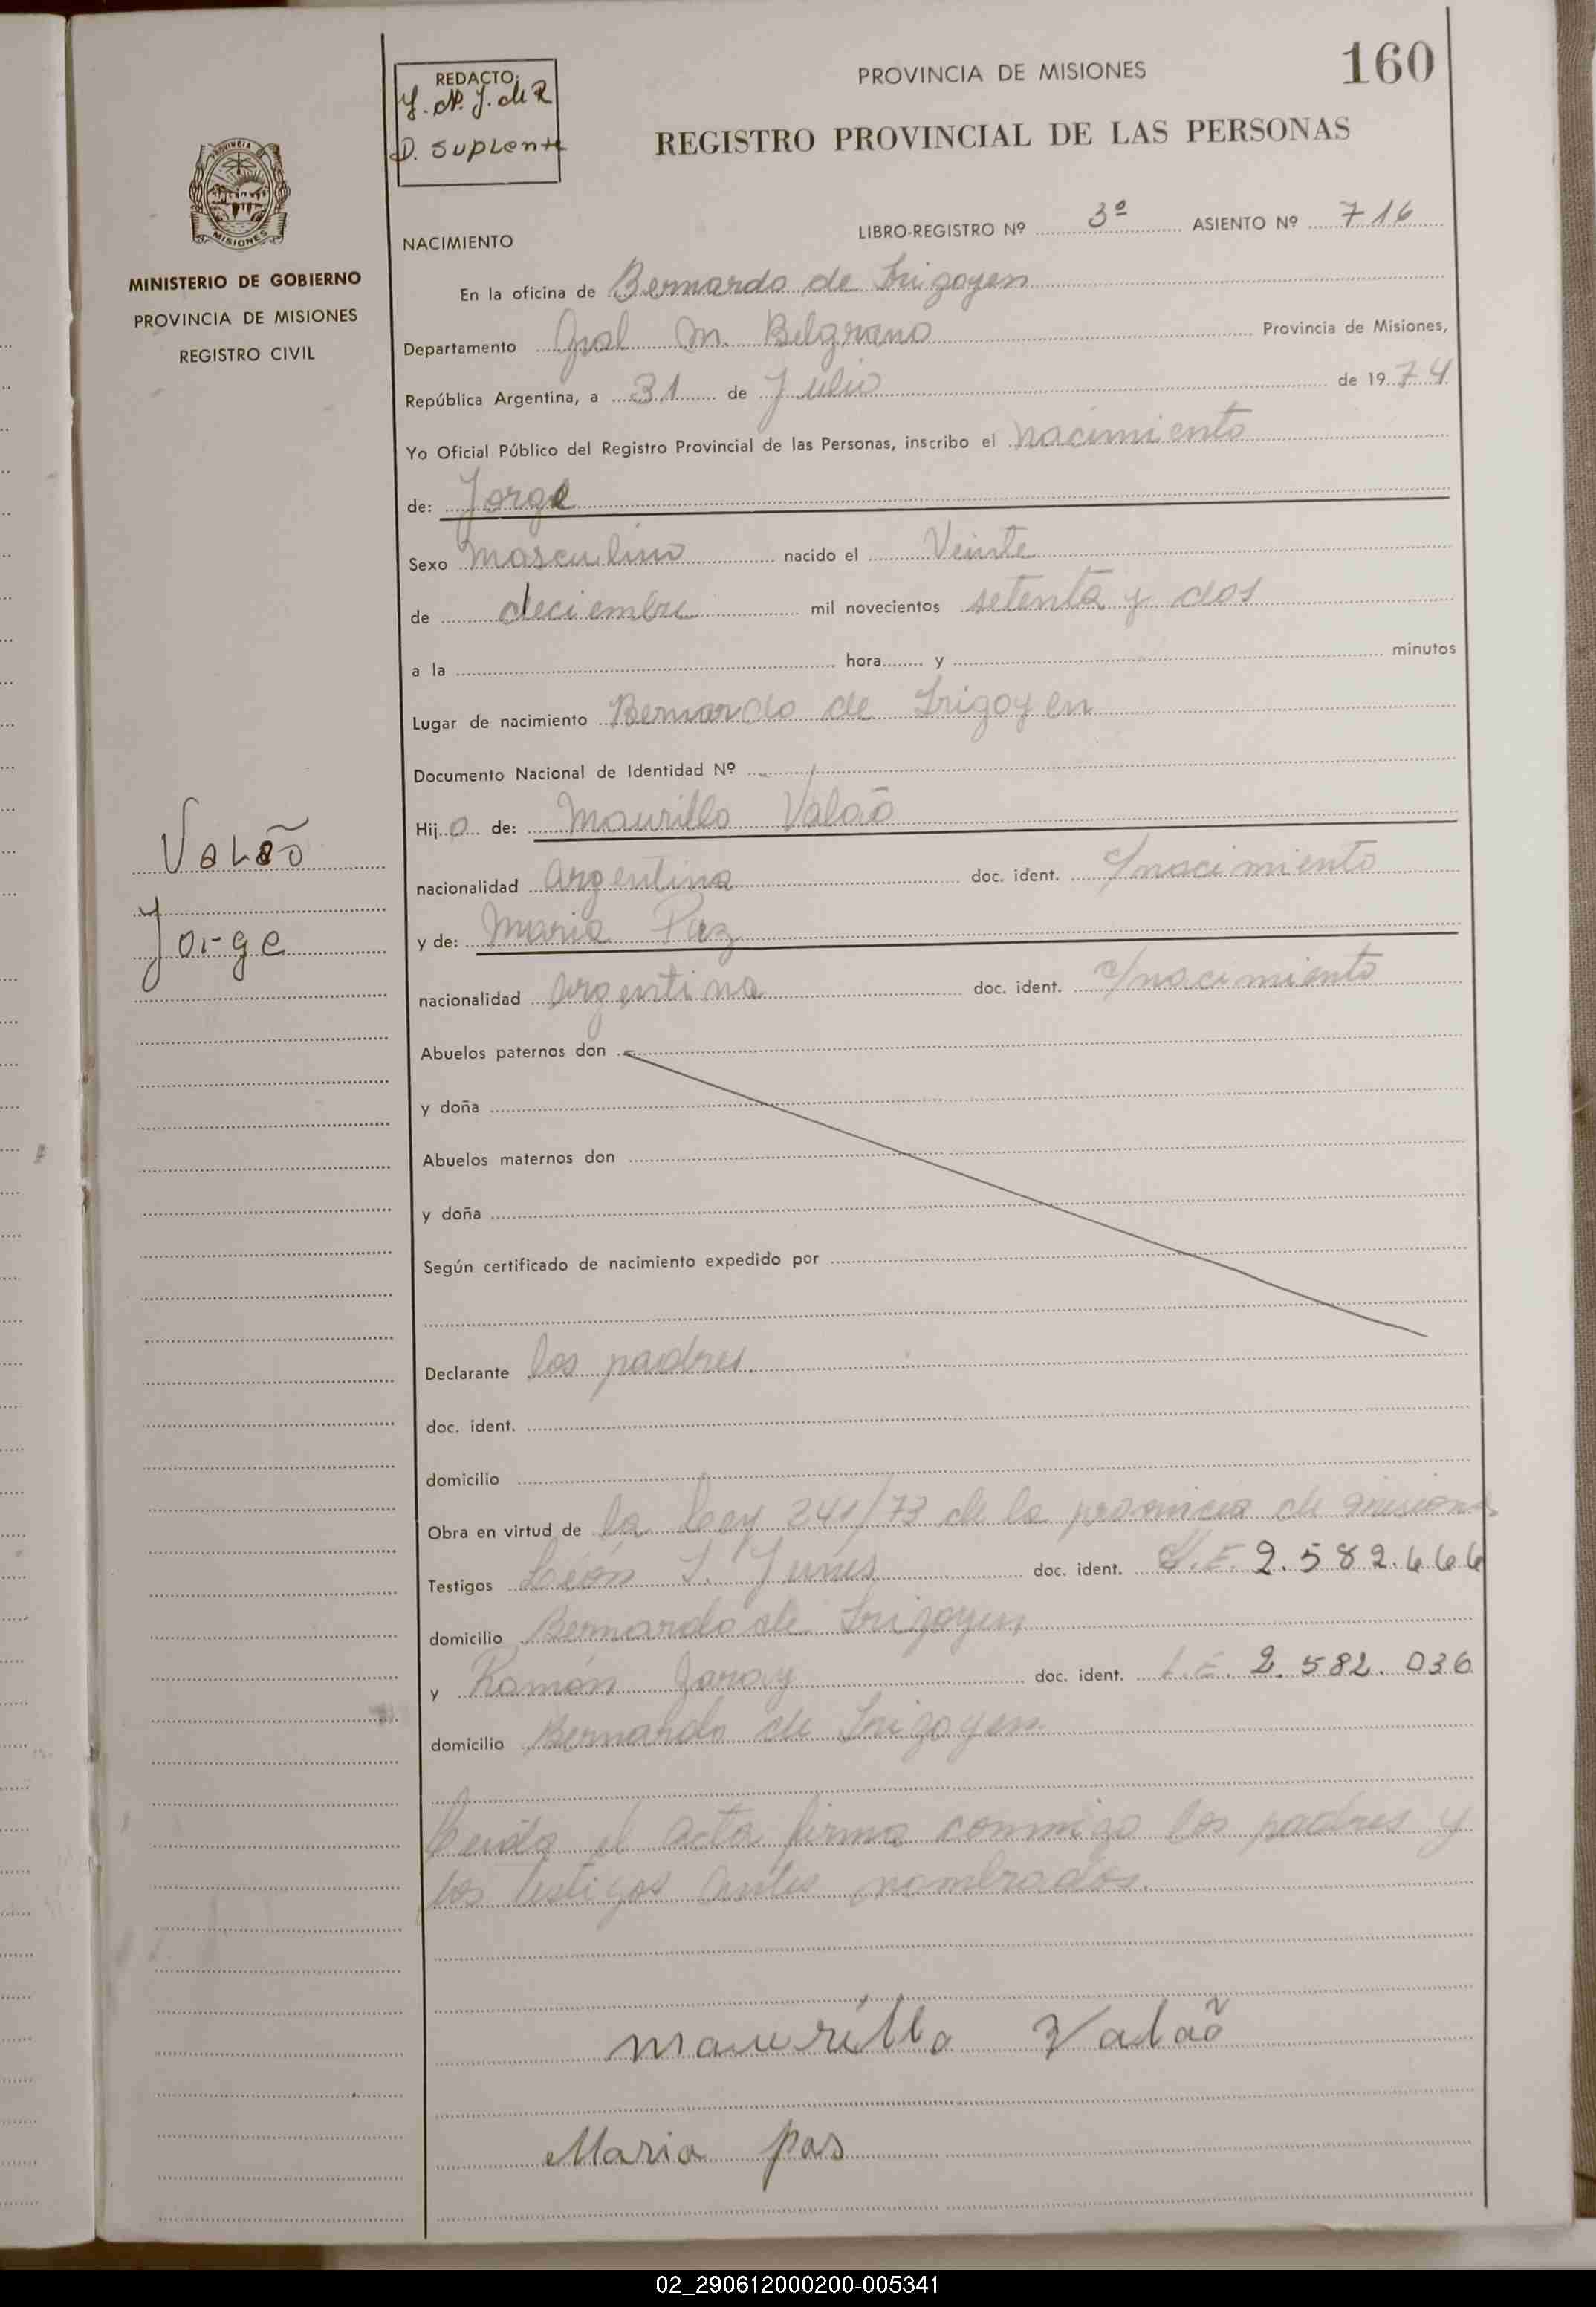 160
REDACTO:
Y. N. J. de R
D. Suplente
PROVINCIA DE MISIONES
REGISTRO PROVINCIAL DE LAS PERSONAS
PROVINCIA
MISIONES
MINISTERIO DE GOBIERNO
PROVINCIA DE MISIONES
REGISTRO CIVIL
Valão
Jorge
LIBRO-REGISTRO Nº 3º ASIENTO Nº 716
NACIMIENTO
En la oficina de Bernardo de Irigoyen
Departamento Gral M. Belgrano Provincia de Misiones,
República Argentina, a 31 de Julio de 1974
Yo Oficial Público del Registro Provincial de las Personas, inscribo el nacimiento
de: Jorge
Sexo masculino nacido el Veinte
de deciembre mil novecientos setenta y dos
a la hora y minutos
Lugar de nacimiento Bernardo de Irigoyen
Documento Nacional de Identidad Nº
Hijo de: Maurillo Valaõ
nacionalidad argentina doc. ident. c/nacimiento
y de: Maria Paz
nacionalidad argentina doc. ident. c/nacimiento
Abuelos paternos don
y doña
Abuelos maternos don
y doña
Según certificado de nacimiento expedido por
Declarante los padres.
doc. ident.
domicilio
Obra en virtud de la Ley 241/73 de la provincia de misiones
Testigos León J. doc. ident. L.E. 2.582.666
domicilio Bernardo de Irigoyen
y Ramón Garay doc. ident. L.E. 2.582.036
domicilio Bernardo de Irigoyen
leida el acta firma conmigo los padres y
los testigos antes nombrados.
maurillo Valaõ
Maria pas
02_290612000200-005341